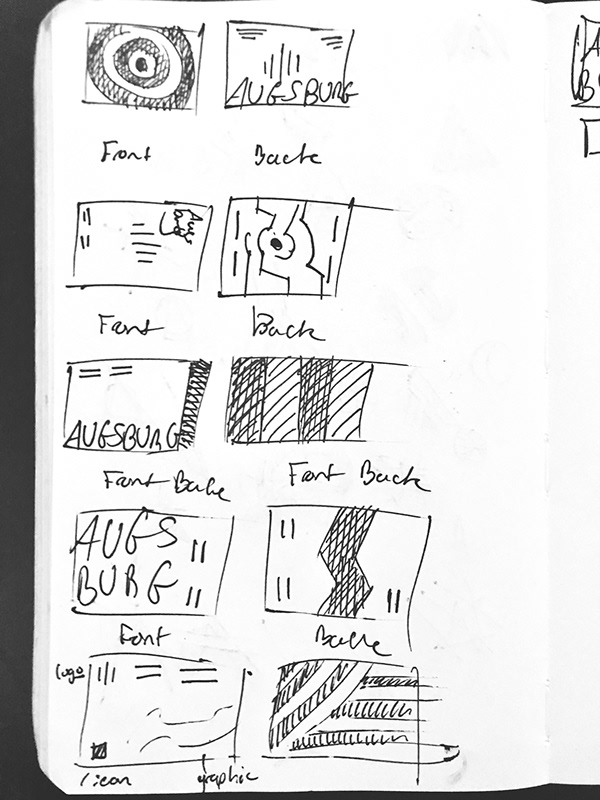 AUGSBURG
Front Back
Front Back
AUGSBURG
Front Back Front Back
AUGS
BURG
Front Back
logo
icon graphic